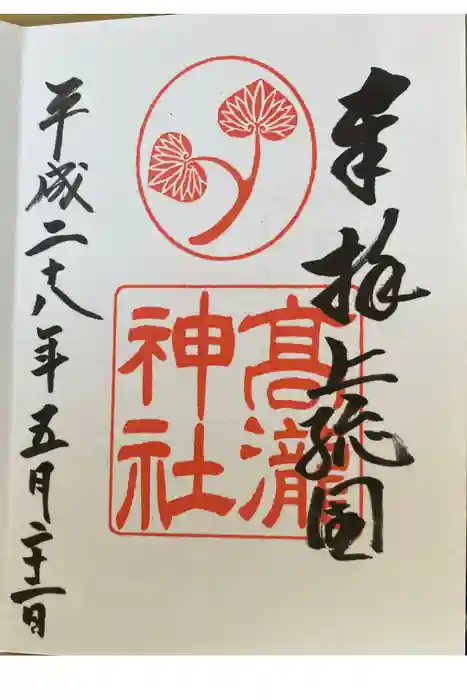 奉拝 上総国
高瀧
神社
平成二十八年五月二十二日